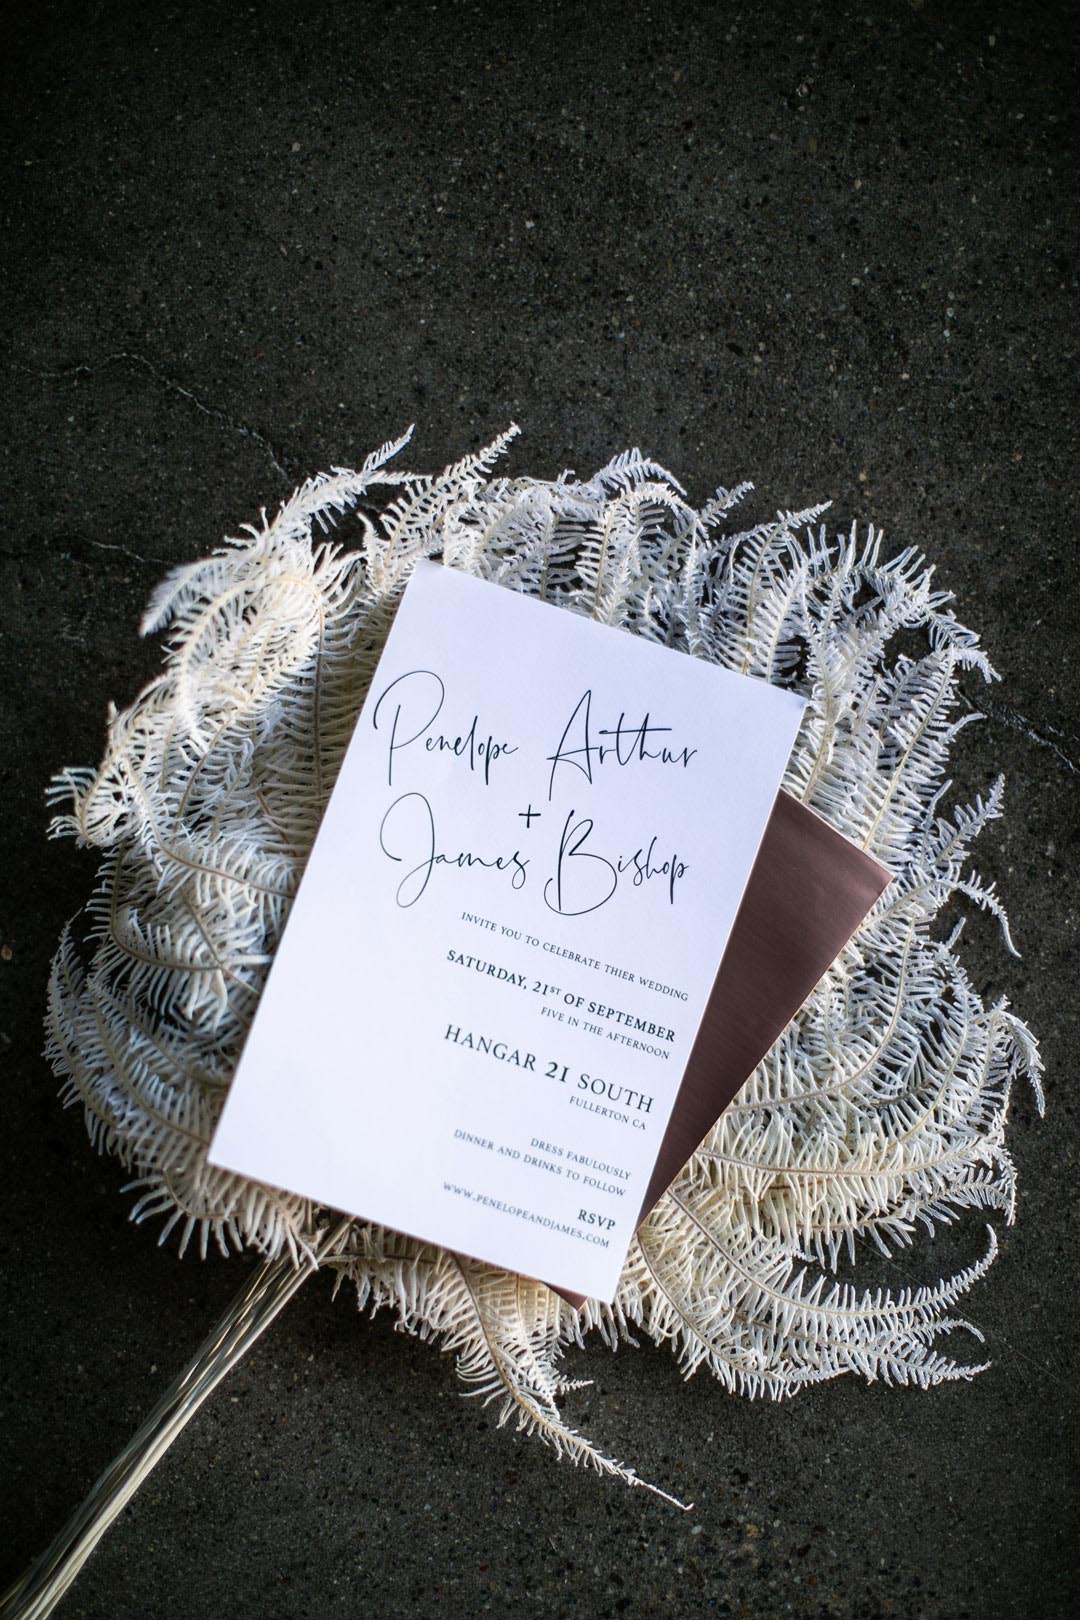 Penelope Arthur
+
James Bishop
INVITE YOU TO CELEBRATE THIER WEDDING
SATURDAY, 21ST OF SEPTEMBER
FIVE IN THE AFTERNOON
HANGAR 21 SOUTH
FULLERTON CA
DRESS FABULOUSLY
DINNER AND DRINKS TO FOLLOW
RSVP
WWW.PENELOPEANDJAMES.COM